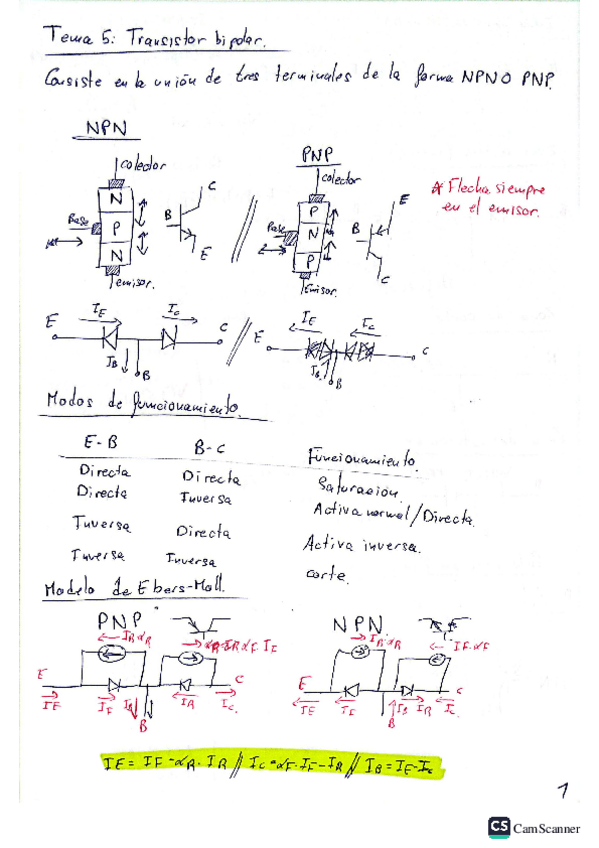 Tema 5: Transistor bipolar.
Consiste en la unión de tres terminales de la forma NPN O PNP.
NPN
colector
N
P
N
Base
emisor.
B
C
E
PNP
colector
P
N
P
Base
Emisor.
E
B
C
* Flecha siempre
en el emisor.
E
IE
IC
C
IB
B
E
IE
IC
C
IB
B
Modos de funcionamiento.
E-B B-C Funcionamiento.
Directa Directa Saturación.
Directa Inversa Activa normal/Directa.
Inversa Directa Activa inversa.
Inversa Inversa corte.
Modelo de Ebers-Moll.
PNP
IR αR
αF · IF
E
C
IE
IF
IB
IR
IC
B
NPN
IR·αR
IF·αF
E
C
IE
IF
IB
IR
IC
B
IE = IF - αR · IR // IC = αF · IF - IR // IB = IE - IC
1
CS CamScanner